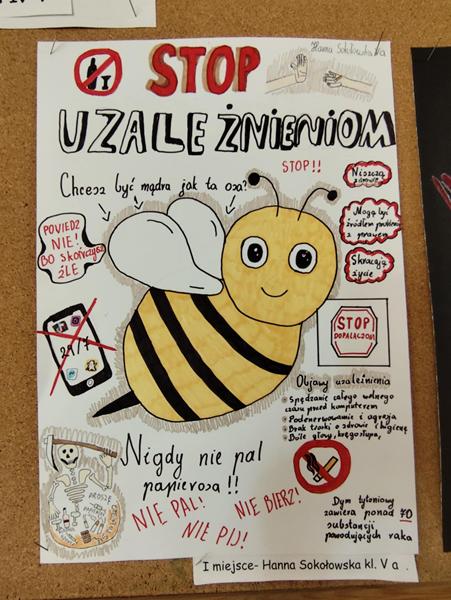 Hanna Sokołowska Va
STOP
UZALEŻNIENIOM
STOP!!
Chcesz być mądra jak ta osa?
Niszczą
zdrowie
POWIEDZ
NIE!
BO SKOŃCZYSZ
ŹLE
Mogą być
źródłem problemów
z prawem
Skracają
życie
24/7
STOP
DOPALACZOM
Objawy uzależnienia
Spędzanie całego wolnego
czasu przed komputerem
Podenerwowanie i agresja
Brak troski o zdrowie i higienę
Bóle głowy, kręgosłupa,
Nigdy nie pal
papierosa!!
PROSZĘ
NIE PAL!
NIE PIJ!
NIE BIERZ!
Dym tytoniowy
zawiera ponad 70
substancji
powodujących raka
I miejsce- Hanna Sokołowska kl. V a .